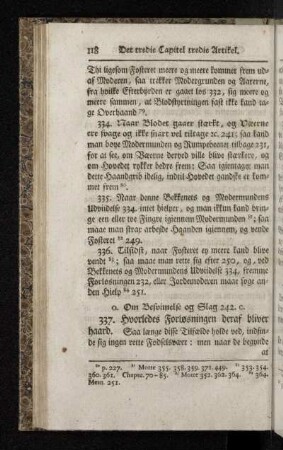 118 Det tredie Capitel tredie Artikel.
Thi ligesom Fosteret meere og meere kommer frem ud-
af Moderen, saa trækker Modergrunden og Aarerne,
fra hvilke Efterbyrden er gaaet los 332, sig meere og
meere sammen, at Blodstyrtningen fast ikke kand tage
Overhaand ⁷⁹.
334. Naar Blodet gaaer stærkt, og Væerne
ere svage og ikke snart vel tiltage 2c. 241: saa kand
man bøye Modermunden og Rumpebeenet tilbage 231.
for at see, om Væerne derved ville blive stærkere, og
om Hovedet rykker bedre frem: Saa igientager man
dette Haandgrib idelig, indtil Hovedet gandske er kommet
frem ⁸⁰.
335. Naar denne Bekkenets og Modermundens
Udvidelse 334. intet hielper, og man ikkun kand brin-
ge een eller tve Fingre igiennem Modermunden ⁸¹; saa
maae man strax arbeyde Haanden igiennem, og vende
Fosteret ⁸² 249.
336. Tilsidst, naar Fosteret ey meere kand blive
vendt ⁸³; saa maae man rette sig efter 250, og, ved
Bekkenets og Modermundens Udvidelse 334, fremme
Forløsningen 232, eller Jordemoderen maae søge an-
den Hielp ⁸⁴ 251.
o. Om Besvimelse og Slag 242. o.
337. Hvorledes Forløsningen deraf bliver
haard. Saa længe disse Tilfælde holde ved, indfin-
de sig ingen rette Fødselsvæer: men naar de begynde
at
p. 227. Mom. 355. 358. 359. 371. 449. 353. 354.
360. 361. Chapm. 70-85. Mom. 352. 362. 364. 364.
Mem. 251.